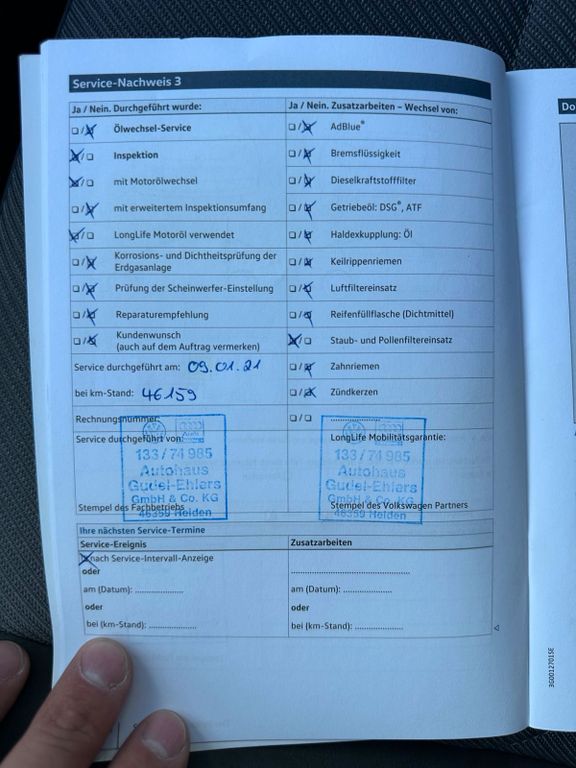 Service-Nachweis 3
Ja / Nein. Durchgeführt wurde:
Ölwechsel-Service
Inspektion
mit Motorölwechsel
mit erweitertem Inspektionsumfang
LongLife Motoröl verwendet
Korrosions- und Dichtheitsprüfung der
Erdgasanlage
Prüfung der Scheinwerfer-Einstellung
Reparaturempfehlung
Kundenwunsch
(auch auf dem Auftrag vermerken)
Service durchgeführt am: 09.01.21
bei km-Stand: 46159
Rechnungsnummer:
Service durchgeführt von:
133/74 985
Autohaus
Gudel-Ehlers
GmbH & Co. KG
46359 Heiden
Stempel des Fachbetriebs
Ja / Nein. Zusatzarbeiten – Wechsel von:
AdBlue®
Bremsflüssigkeit
Dieselkraftstofffilter
Getriebeöl: DSG®, ATF
Haldexkupplung: Öl
Keilrippenriemen
Luftfiltereinsatz
Reifenfüllflasche (Dichtmittel)
Staub- und Pollenfiltereinsatz
Zahnriemen
Zündkerzen
LongLife Mobilitätsgarantie:
133/74 985
Autohaus
Gudel-Ehlers
GmbH & Co. KG
46359 Heiden
Stempel des Volkswagen Partners
Ihre nächsten Service-Termine
Service-Ereignis
nach Service-Intervall-Anzeige
oder
am (Datum): ....................
oder
bei (km-Stand): ....................
Zusatzarbeiten
am (Datum): ....................
oder
bei (km-Stand): ....................
Do
3G0012701SE